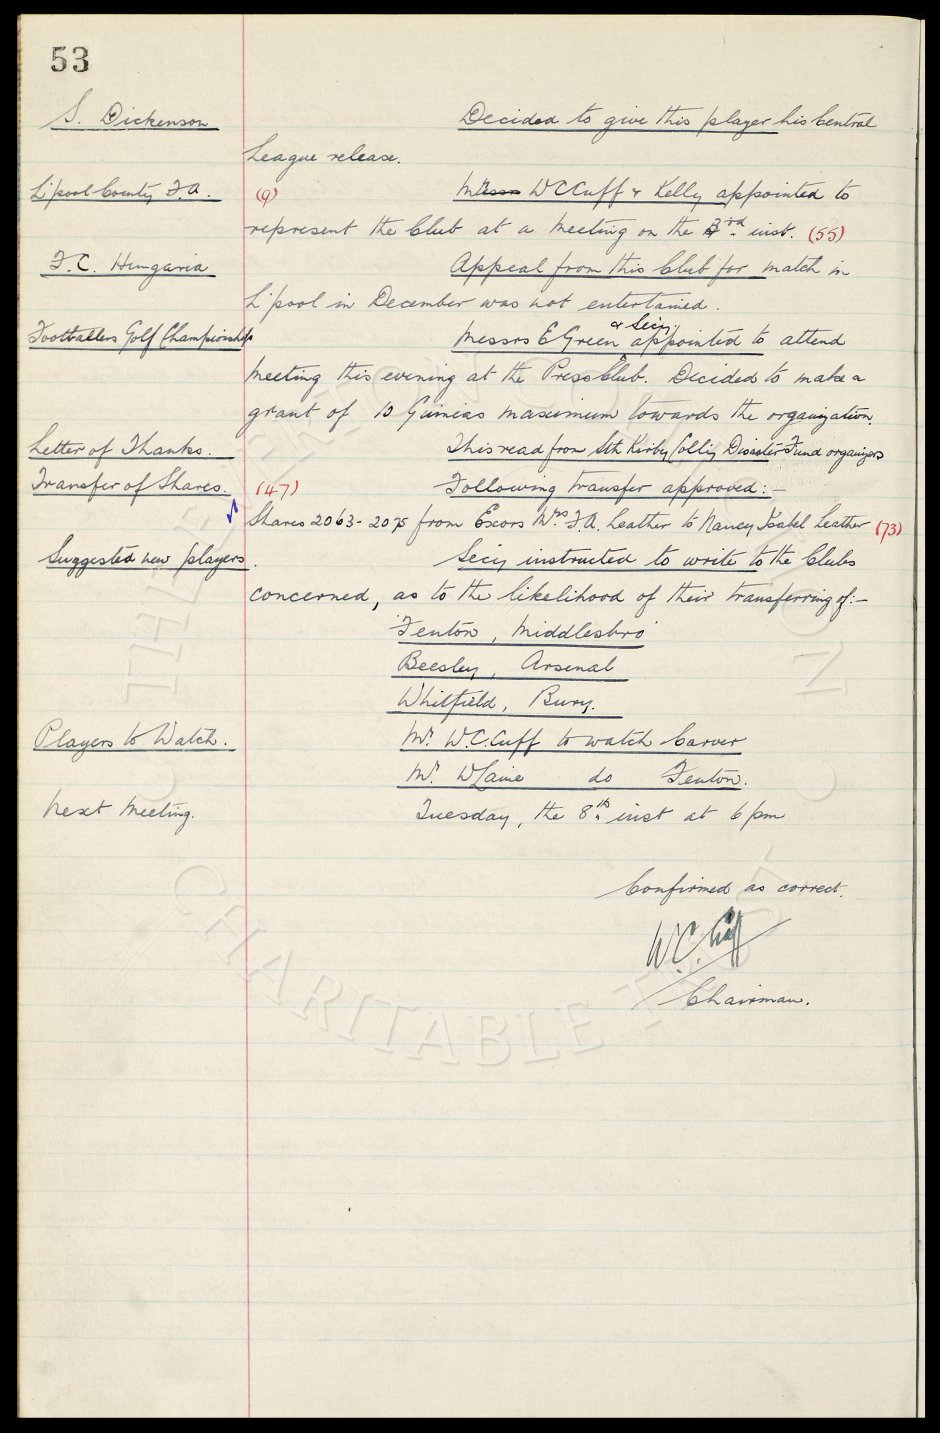 53
S. Dickenson Decided to give this player his Central
League release.
L'pool County F.A. (9) Messrs W C Cuff & Kelly appointed to
represent the Club at a meeting on the 3rd inst. (55)
F.C. Hungaria Appeal from this Club for match in
L'pool in December was not entertained.
Footballers Golf Championship Messrs E Green & Secy appointed to attend
meeting this evening at the Press Club. Decided to make a
grant of 10 Guineas maximum towards the organization.
Letter of Thanks. This read from Sth Kirby Colliy Disaster Fund organizers
Transfer of Shares. (47) Following transfer approved:-
Shares 2063-2075 from Excors Mrs F.A. Leather to Nancy Isabel Leather (73)
Suggested new players. Secy instructed to write to the Clubs
concerned, as to the likelihood of their transferring of:-
Fenton, Middlesbro'
Beesley, Arsenal
Whitfield, Bury.
Players to Watch. Mr. W.C. Cuff to watch Carver
Mr. W Laine do Fenton.
Next Meeting. Tuesday, the 8th inst at 6 pm
Confirmed as correct.
W.C. Cuff
Chairman.
THE EVERTON COLLECTION
CHARITABLE TRUST